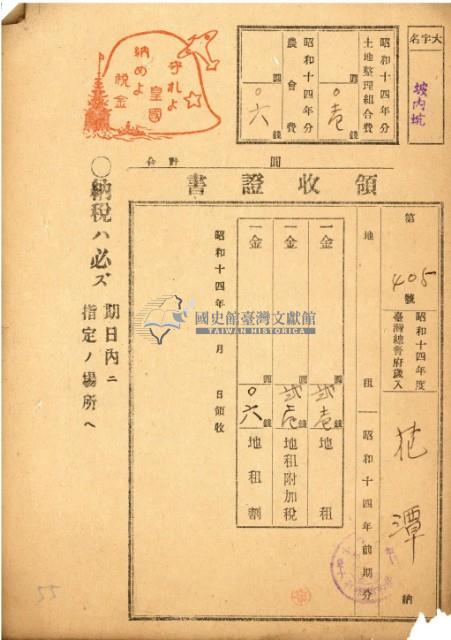 大字名
坡內坑
昭和十四年分
土地整理組合費
圓
〇壱錢
昭和十四年分
農會費
圓
〇六錢
守れよ
皇國
納めよ
稅金
領收證書
第405號
昭和十四年度
臺灣總督府歲入
花潭
納
地租
昭和十四年前期分
一金
圓
弐壱錢
地租
一金
圓
錢
地租附加稅
一金
圓
〇六錢
地租割
昭和十四年
月
日領收
國史館臺灣文獻館
TAIWAN HISTORICA
〇納稅ハ必ズ
期日內ニ
指定ノ場所ヘ
55